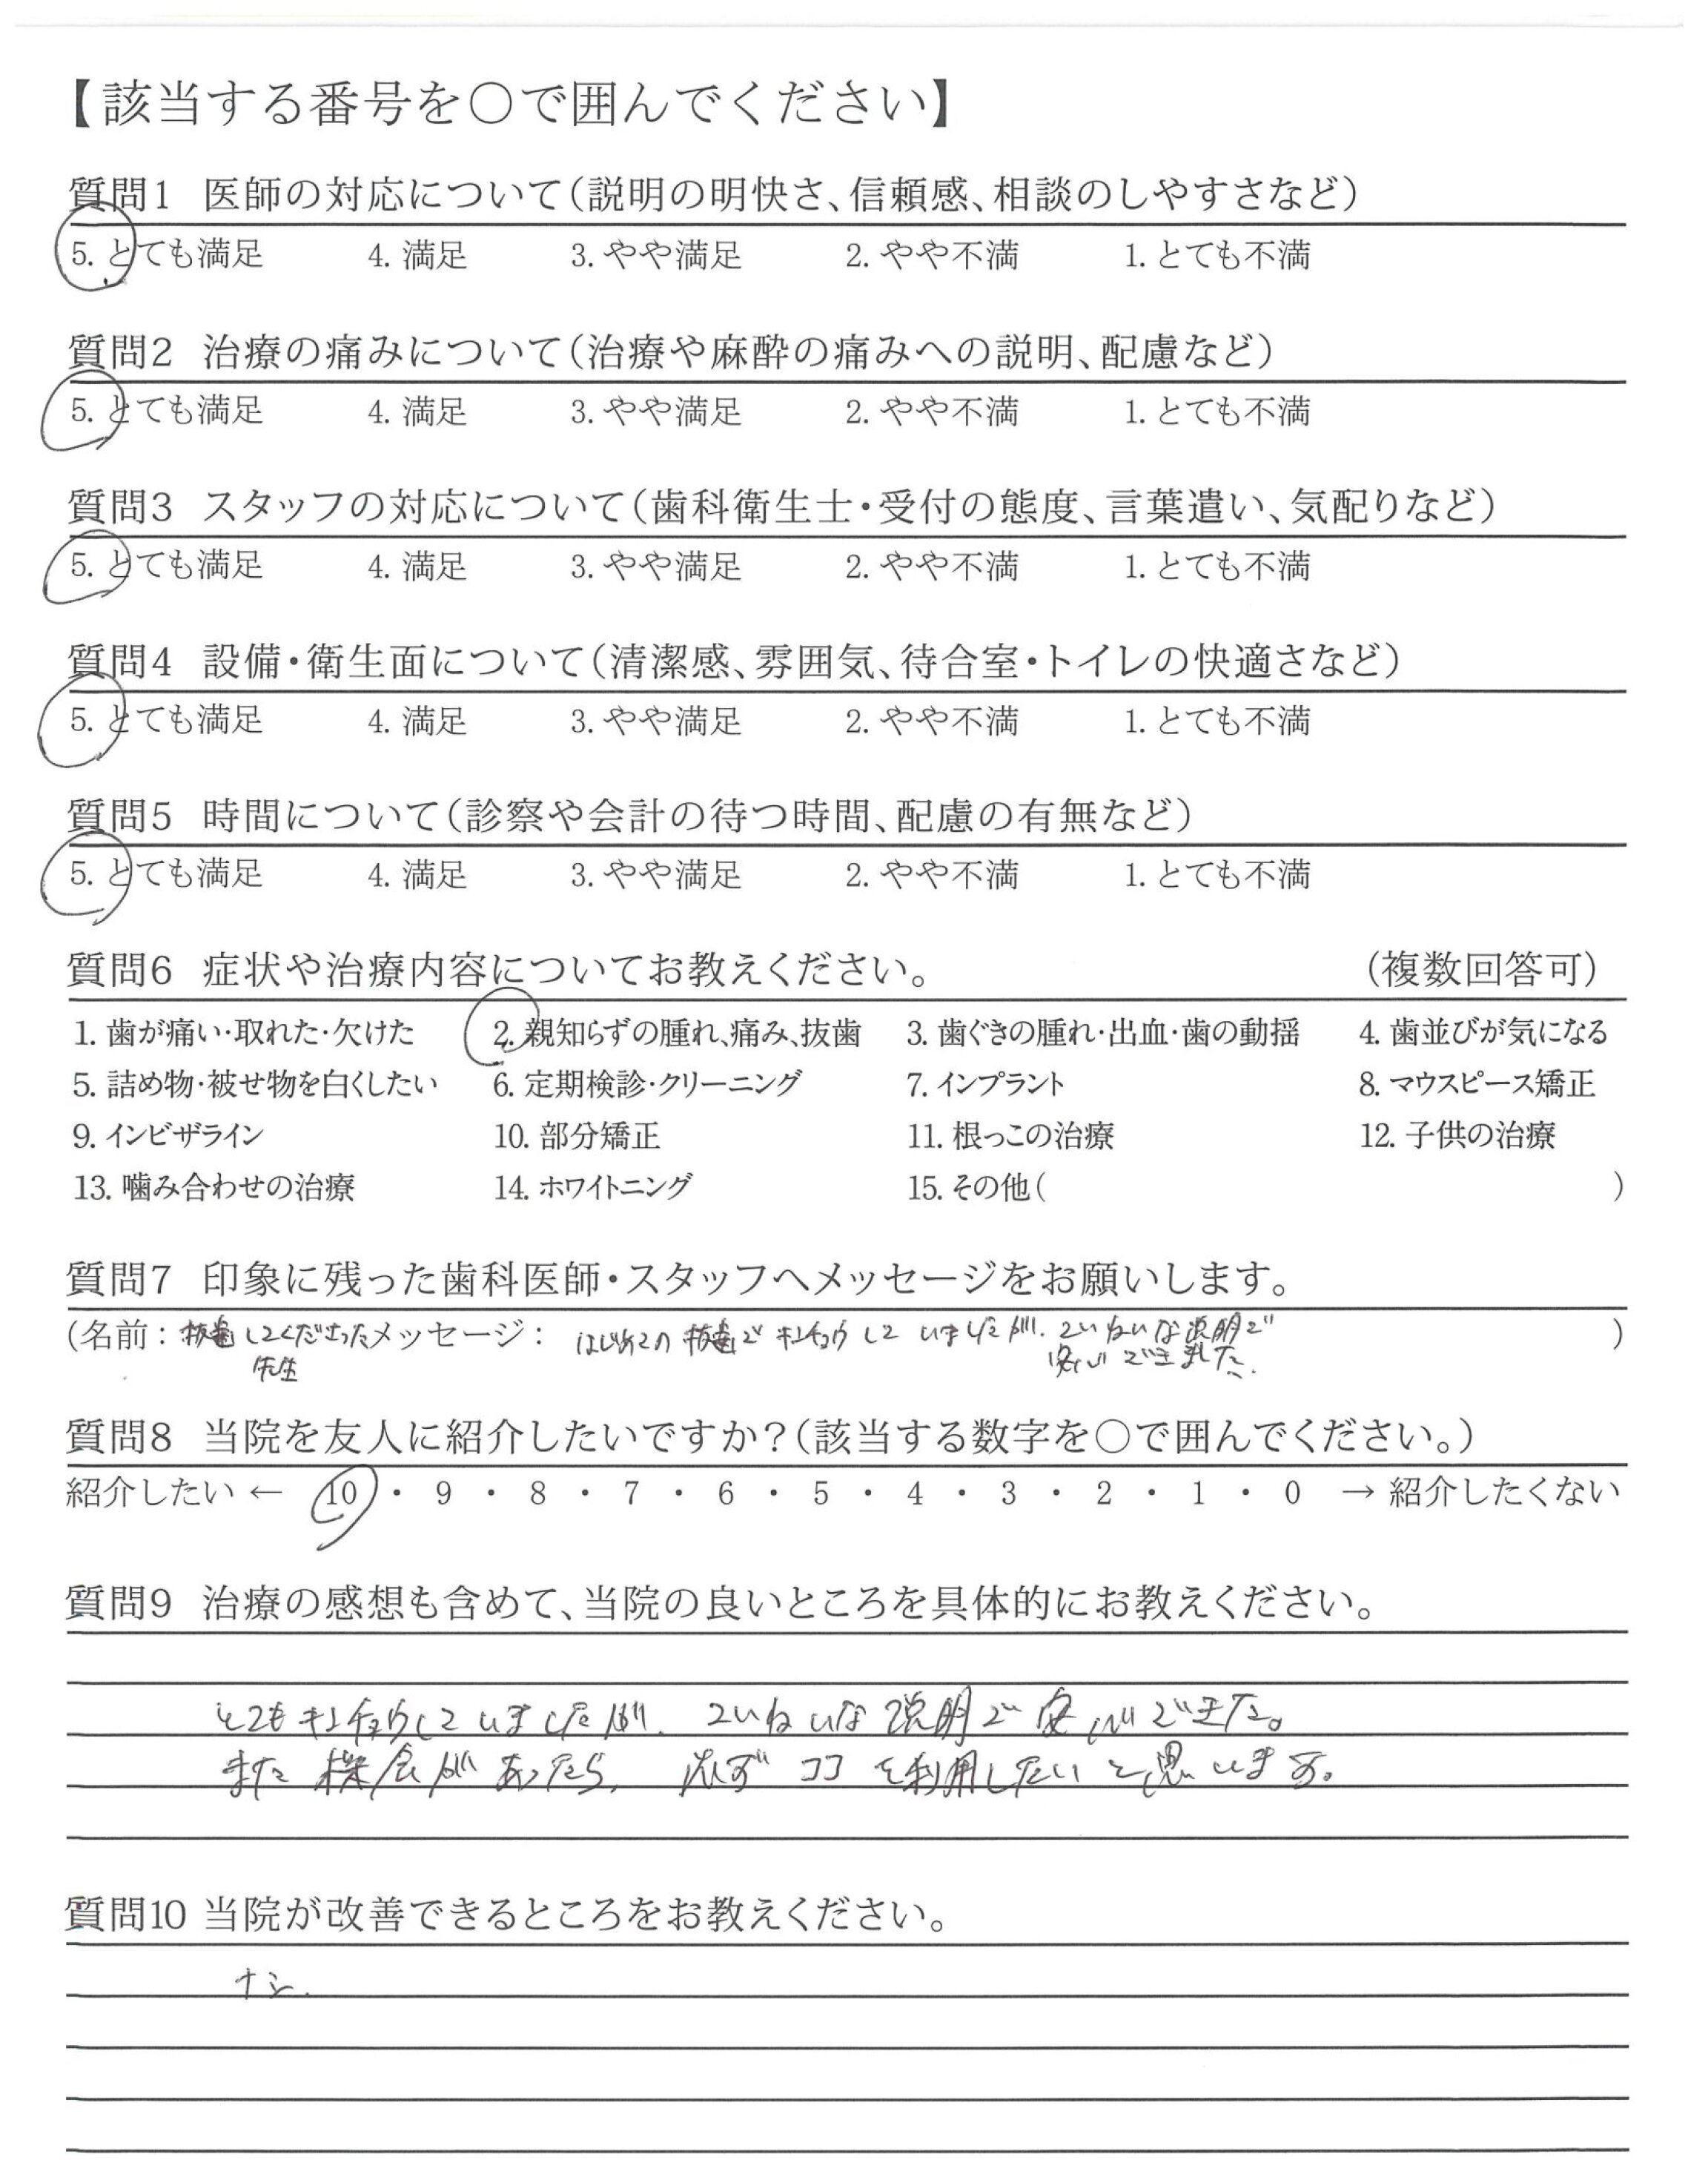 【該当する番号を○で囲んでください】
質問1 医師の対応について（説明の明快さ、信頼感、相談のしやすさなど）
5. とても満足 4. 満足 3. やや満足 2. やや不満 1. とても不満
質問2 治療の痛みについて（治療や麻酔の痛みへの説明、配慮など）
5. とても満足 4. 満足 3. やや満足 2. やや不満 1. とても不満
質問3 スタッフの対応について（歯科衛生士・受付の態度、言葉遣い、気配りなど）
5. とても満足 4. 満足 3. やや満足 2. やや不満 1. とても不満
質問4 設備・衛生面について（清潔感、雰囲気、待合室・トイレの快適さなど）
5. とても満足 4. 満足 3. やや満足 2. やや不満 1. とても不満
質問5 時間について（診察や会計の待つ時間、配慮の有無など）
5. とても満足 4. 満足 3. やや満足 2. やや不満 1. とても不満
質問6 症状や治療内容についてお教えください。 （複数回答可）
1. 歯が痛い・取れた・欠けた 2. 親知らずの腫れ、痛み、抜歯 3. 歯ぐきの腫れ・出血・歯の動揺 4. 歯並びが気になる
5. 詰め物・被せ物を白くしたい 6. 定期検診・クリーニング 7. インプラント 8. マウスピース矯正
9. インビザライン 10. 部分矯正 11. 根っこの治療 12. 子供の治療
13. 噛み合わせの治療 14. ホワイトニング 15. その他（ ）
質問7 印象に残った歯科医師・スタッフへメッセージをお願いします。
（名前：抜歯してくださった メッセージ： はじめての抜歯でキンチョウしていましたが、ていねいな説明で ）
先生 安心できました。
質問8 当院を友人に紹介したいですか？（該当する数字を○で囲んでください。）
紹介したい ← 10 ・ 9 ・ 8 ・ 7 ・ 6 ・ 5 ・ 4 ・ 3 ・ 2 ・ 1 ・ 0 → 紹介したくない
質問9 治療の感想も含めて、当院の良いところを具体的にお教えください。
とてもキンチョウしていましたが、ていねいな説明で安心できた。
また機会があったら、先ずココを利用したいと思います。
質問10 当院が改善できるところをお教えください。
ナシ.